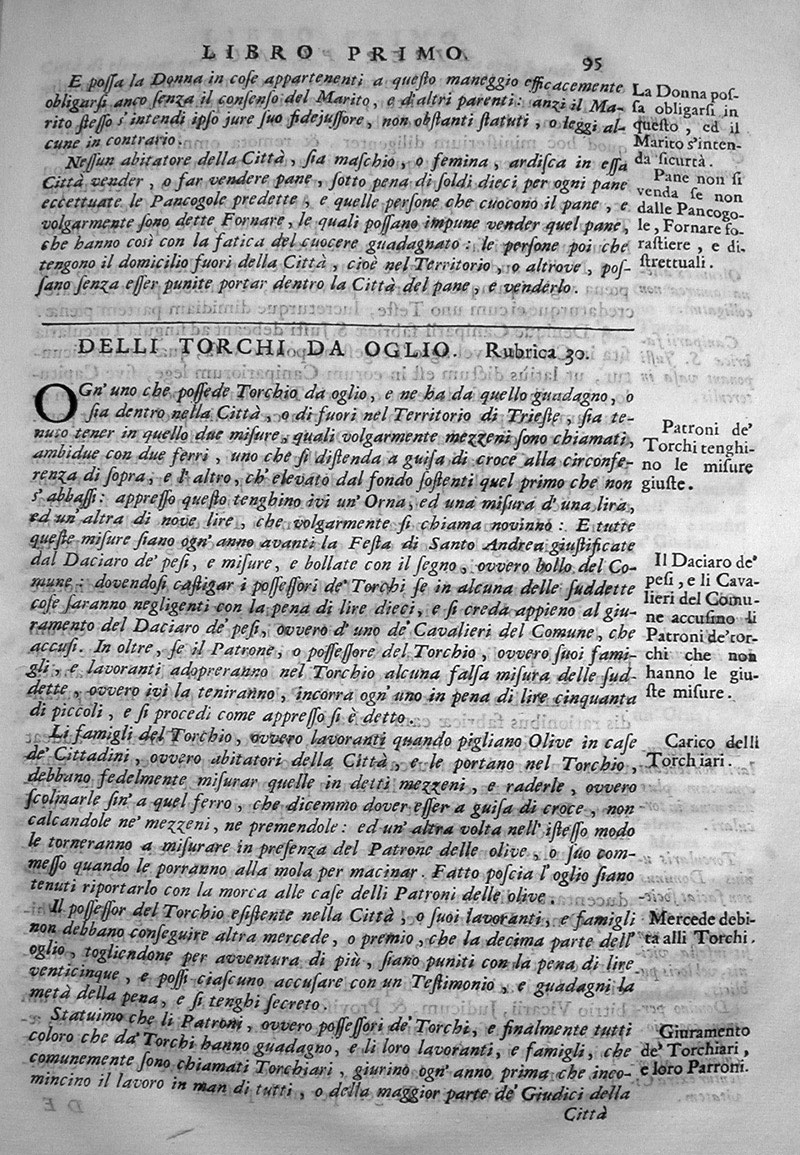 LIBRO PRIMO. 95
E possa la Donna in cose appartenenti a questo maneggio efficacemente
obligarsi anco senza il consenso del Marito, e d'altri parenti: anzi il Ma-
rito stesso s'intendi ipso jure suo fidejussore, non obstanti statuti, o leggi al-
cune in contrario.
La Donna pos-
sa obligarsi in
questo, ed il
Marito s'inten-
da sicurtà.
Nessun abitatore della Città, sia maschio, o femina, ardisca in essa
Città vender, o far vendere pane, sotto pena di soldi dieci per ogni pane
eccettuate le Pancogole predette, e quelle persone che cuocono il pane, e
volgarmente sono dette Fornare, le quali possano impune vender quel pane,
che hanno così con la fatica del cuocere guadagnato: le persone poi che
tengono il domicilio fuori della Città, cioè nel Territorio, o altrove, pos-
sano senza esser punite portar dentro la Città del pane, e venderlo.
Pane non si
venda se non
dalle Pancogo-
le, Fornare fo-
rastiere, e di-
strettuali.
DELLI TORCHI DA OGLIO. Rubrica 30.
OGn'uno che possede Torchio da oglio, e ne ha da quello guadagno, o
sia dentro nella Città, o di fuori nel Territorio di Trieste, sia te-
nuto tener in quello due misure, quali volgarmente mezzeni sono chiamati,
ambidue con due ferri, uno che si distenda a guisa di croce alla circonfe-
renza di sopra, e l'altro, ch'elevato dal fondo sostenti quel primo che non
s'abbassi: appresso questo tenghino ivi un'Orna, ed una misura d'una lira,
ed un'altra di nove lire, che volgarmente si chiama novinno: E tutte
queste misure siano ogn'anno avanti la Festa di Santo Andrea giustificate
dal Daciaro de' pesi, e misure, e bollate con il segno, ovvero bollo del Co-
mune: dovendosi castigar i possessori de' Torchi se in alcuna delle suddette
cose saranno negligenti con la pena di lire dieci, e si creda appieno al giu-
ramento del Daciaro de' pesi, ovvero d'uno de' Cavalieri del Comune, che
accusi. In oltre, se il Patrone, o possessore del Torchio, ovvero suoi fami-
gli, e lavoranti adopreranno nel Torchio alcuna falsa misura delle sud-
dette, ovvero ivi la teniranno, incorra ogn'uno in pena di lire cinquanta
di piccoli, e si procedi come appresso si è detto.
Patroni de'
Torchi tenghi-
no le misure
giuste.
Il Daciaro de'
pesi, e li Cava-
lieri del Comu-
ne accusino li
Patroni de' tor-
chi che non
hanno le giu-
ste misure.
Li famigli del Torchio, ovvero lavoranti quando pigliano Olive in case
de' Cittadini, ovvero abitatori della Città, e le portano nel Torchio,
debbano fedelmente misurar quelle in detti mezzeni, e raderle, ovvero
scolmarle sin'a quel ferro, che dicemmo dover esser a guisa di croce, non
calcandole ne' mezzeni, ne premendole: ed un'altra volta nell'istesso modo
le torneranno a misurare in presenza del Patrone delle olive, o suo com-
messo quando le porranno alla mola per macinar. Fatto poscia l'oglio siano
tenuti riportarlo con la morca alle case delli Patroni delle olive.
Carico delli
Torchiari.
Il possessor del Torchio esistente nella Città, o suoi lavoranti, e famigli
non debbano conseguire altra mercede, o premio, che la decima parte dell'
oglio, togliendone per avventura di più, siano puniti con la pena di lire
venticinque, e possi ciascuno accusare con un Testimonio, e guadagni la
metà della pena, e si tenghi secreto.
Mercede debi-
ta alli Torchi.
Statuimo che li Patroni, ovvero possessori de' Torchi, e finalmente tutti
coloro che da' Torchi hanno guadagno, e li loro lavoranti, e famigli, che
comunemente sono chiamati Torchiari, giurino ogn'anno prima che inco-
mincino il lavoro in man di tutti, o della maggior parte de' Giudici della
Città
Giuramento
de' Torchiari,
e loro Patroni.